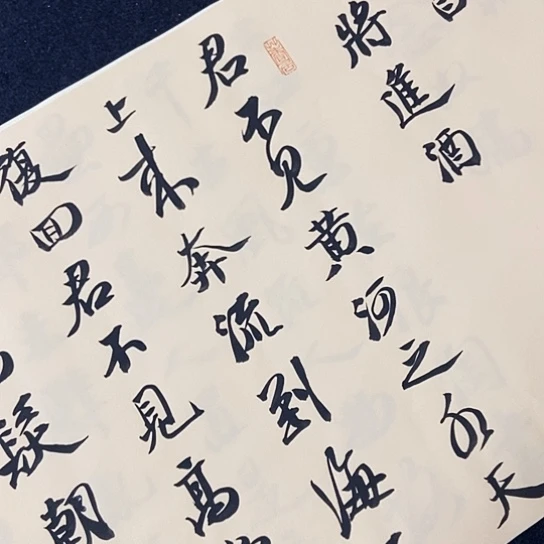 將進酒
君不见黄河之水天
上来奔流到海
復回君不見高
髮朝